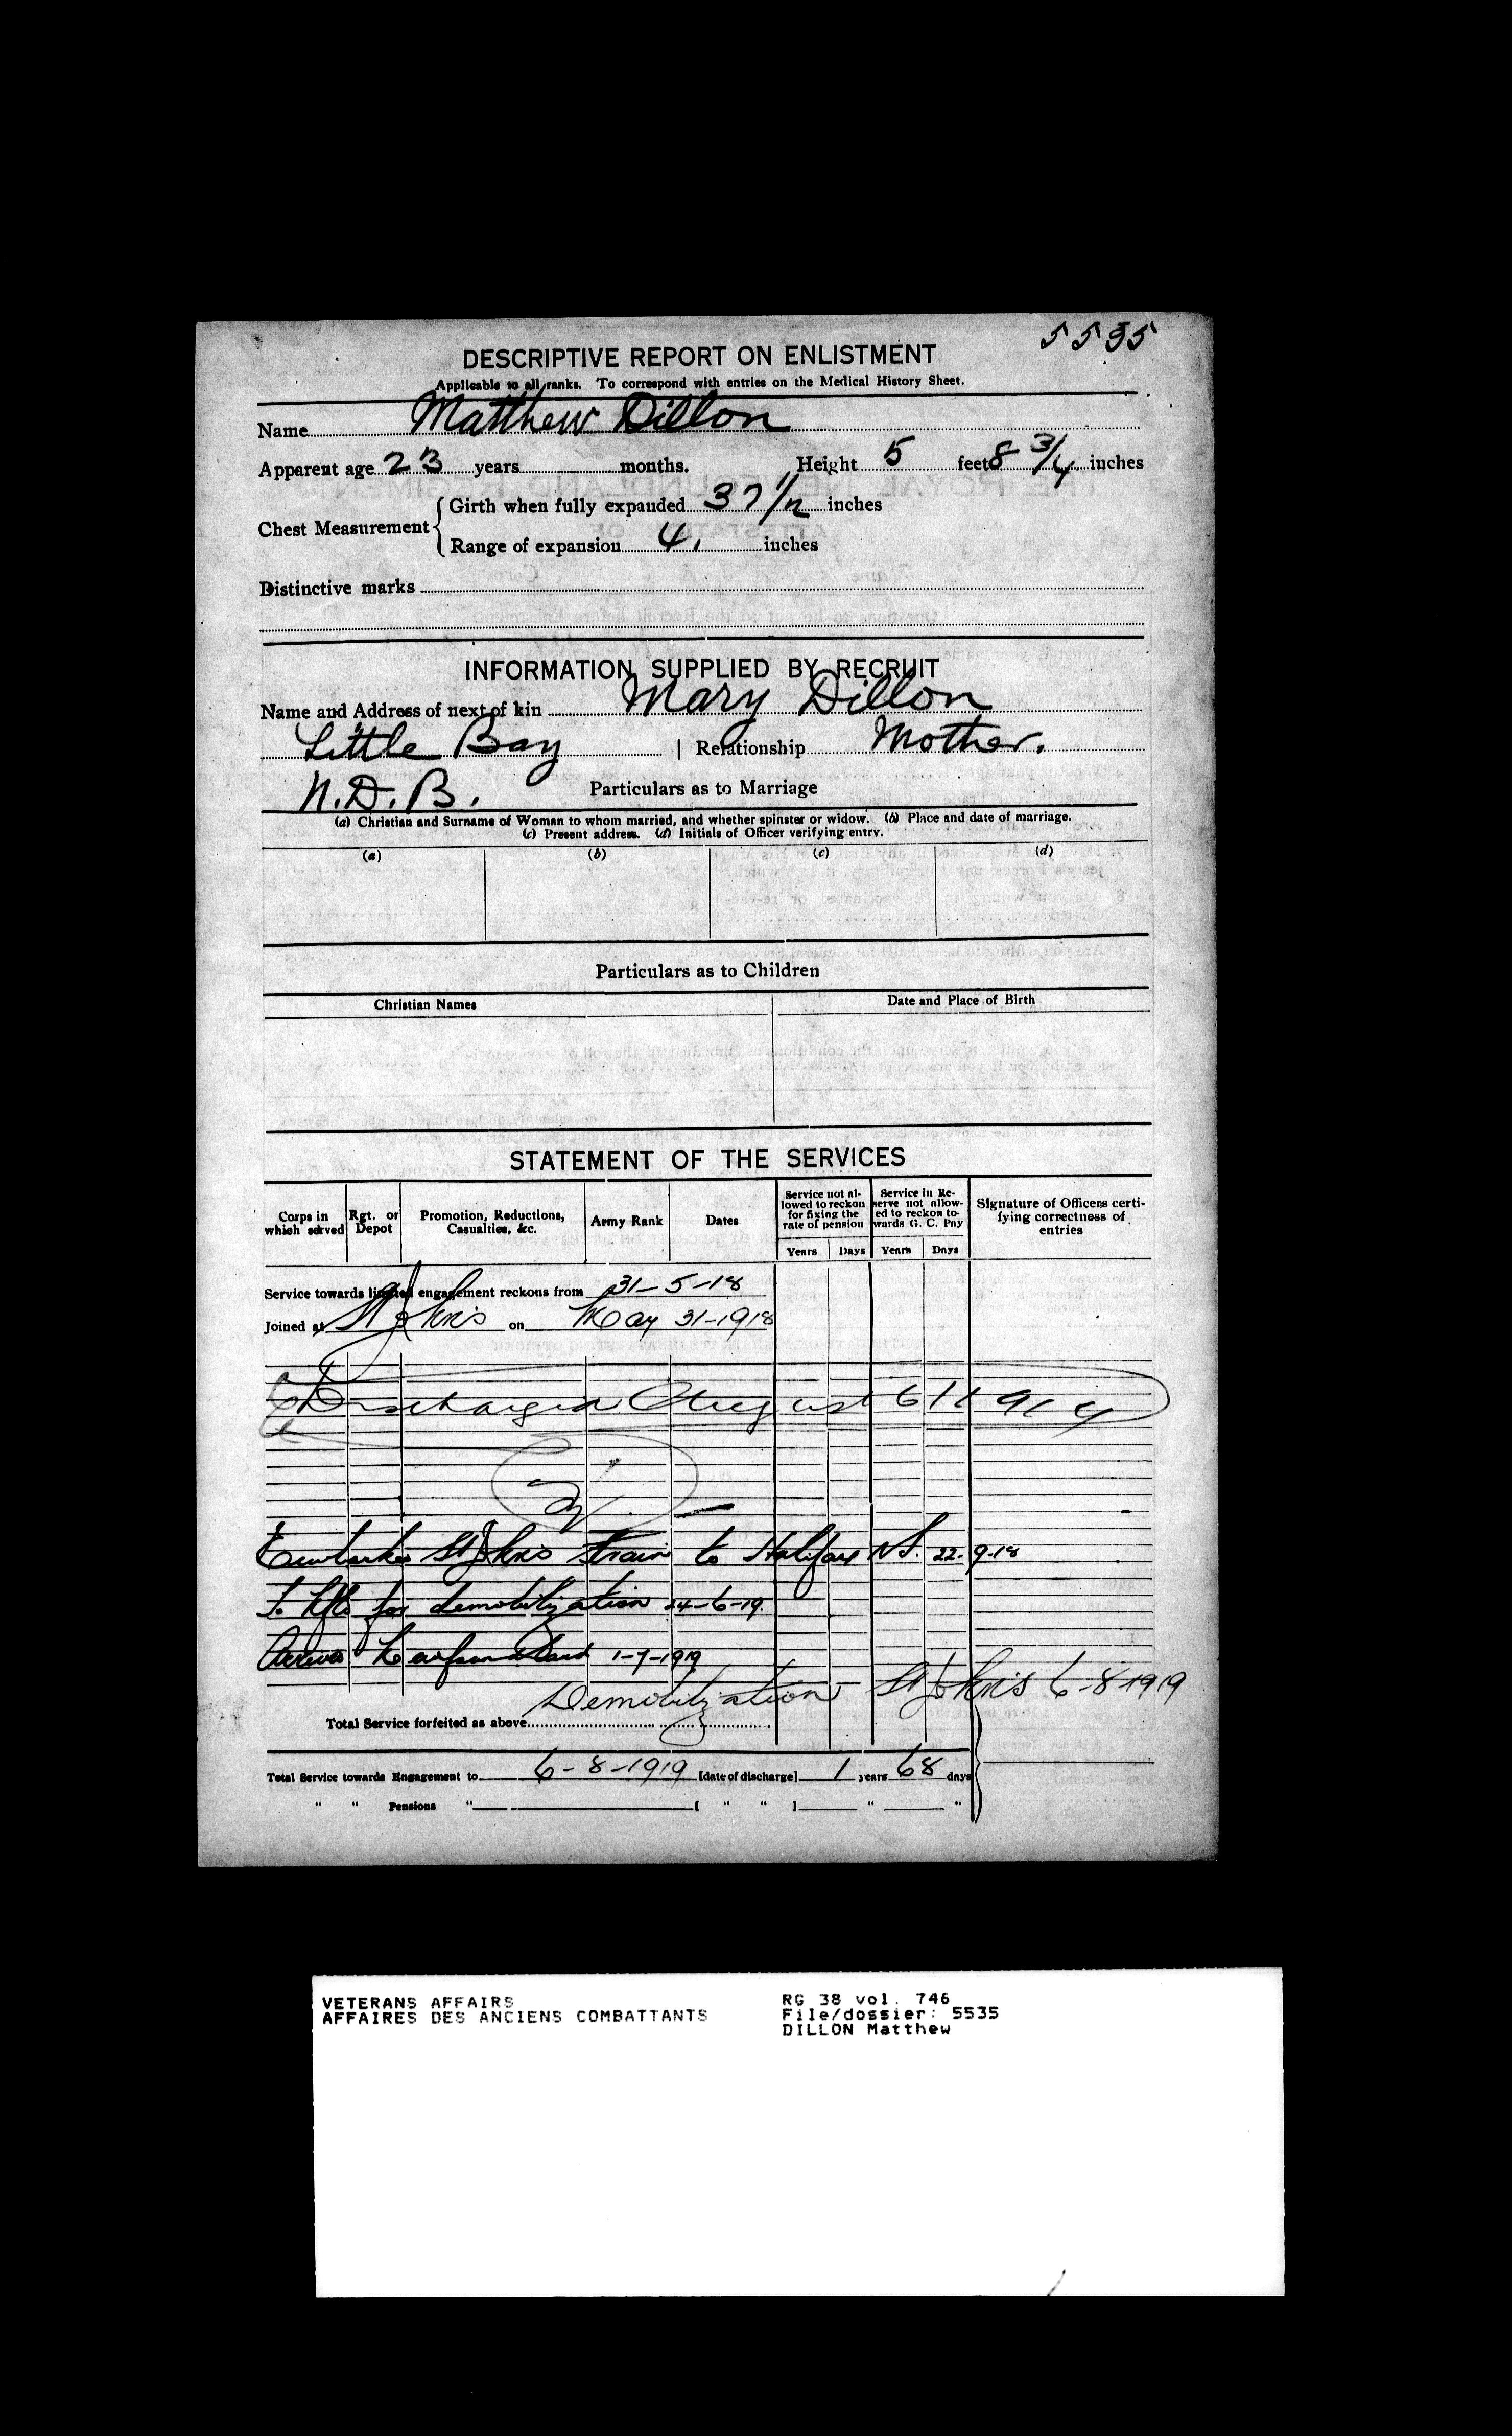 5535
DESCRIPTIVE REPORT ON ENLISTMENT
Applicable to all ranks. To correspond with entries on the Medical History Sheet.
Name Matthew Dillon
Apparent age 23 years months. Height 5 feet 8 3/4 inches
Chest Measurement Girth when fully expanded 37 1/2 inches
Range of expansion 4. inches
Distinctive marks
INFORMATION SUPPLIED BY RECRUIT
Name and Address of next of kin Mary Dillon
Little Bay | Relationship Mother.
N.D.B. Particulars as to Marriage
(a) Christian and Surname of Woman to whom married, and whether spinster or widow. (b) Place and date of marriage.
(c) Present address. (d) Initials of Officer verifying entry.
(a) (b) (c) (d)
Particulars as to Children
Christian Names Date and Place of Birth
STATEMENT OF THE SERVICES
Corps in which served Rgt. or Depot Promotion, Reductions, Casualties, &c. Army Rank Dates Service not allowed to reckon for fixing the rate of pension Service in Reserve not allowed to reckon towards G. C. Pay Signature of Officers certifying correctness of entries
Years Days Years Days
Service towards limited engagement reckons from 31-5-18
Joined at St Johns on May 31-1918
Discharged August 6/1919
Embarked St Johns train to Halifax N.S. 22-9-18
To Nfld for demobilization 24-6-19.
Arrived Newfoundland 1-7-1919
Demobilization St Johns 6-8-1919
Total Service forfeited as above
Total Service towards Engagement to 6-8-1919 [date of discharge] 1 years 68 days
" " Pensions " [ " " ] " "
VETERANS AFFAIRS
AFFAIRES DES ANCIENS COMBATTANTS
RG 38 vol. 746
File/dossier: 5535
DILLON Matthew